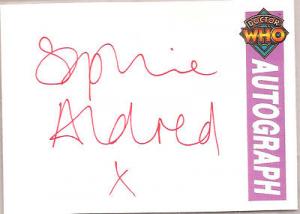 Sophie
Aldred
x
DOCTOR
WHO
AUTOGRAPH